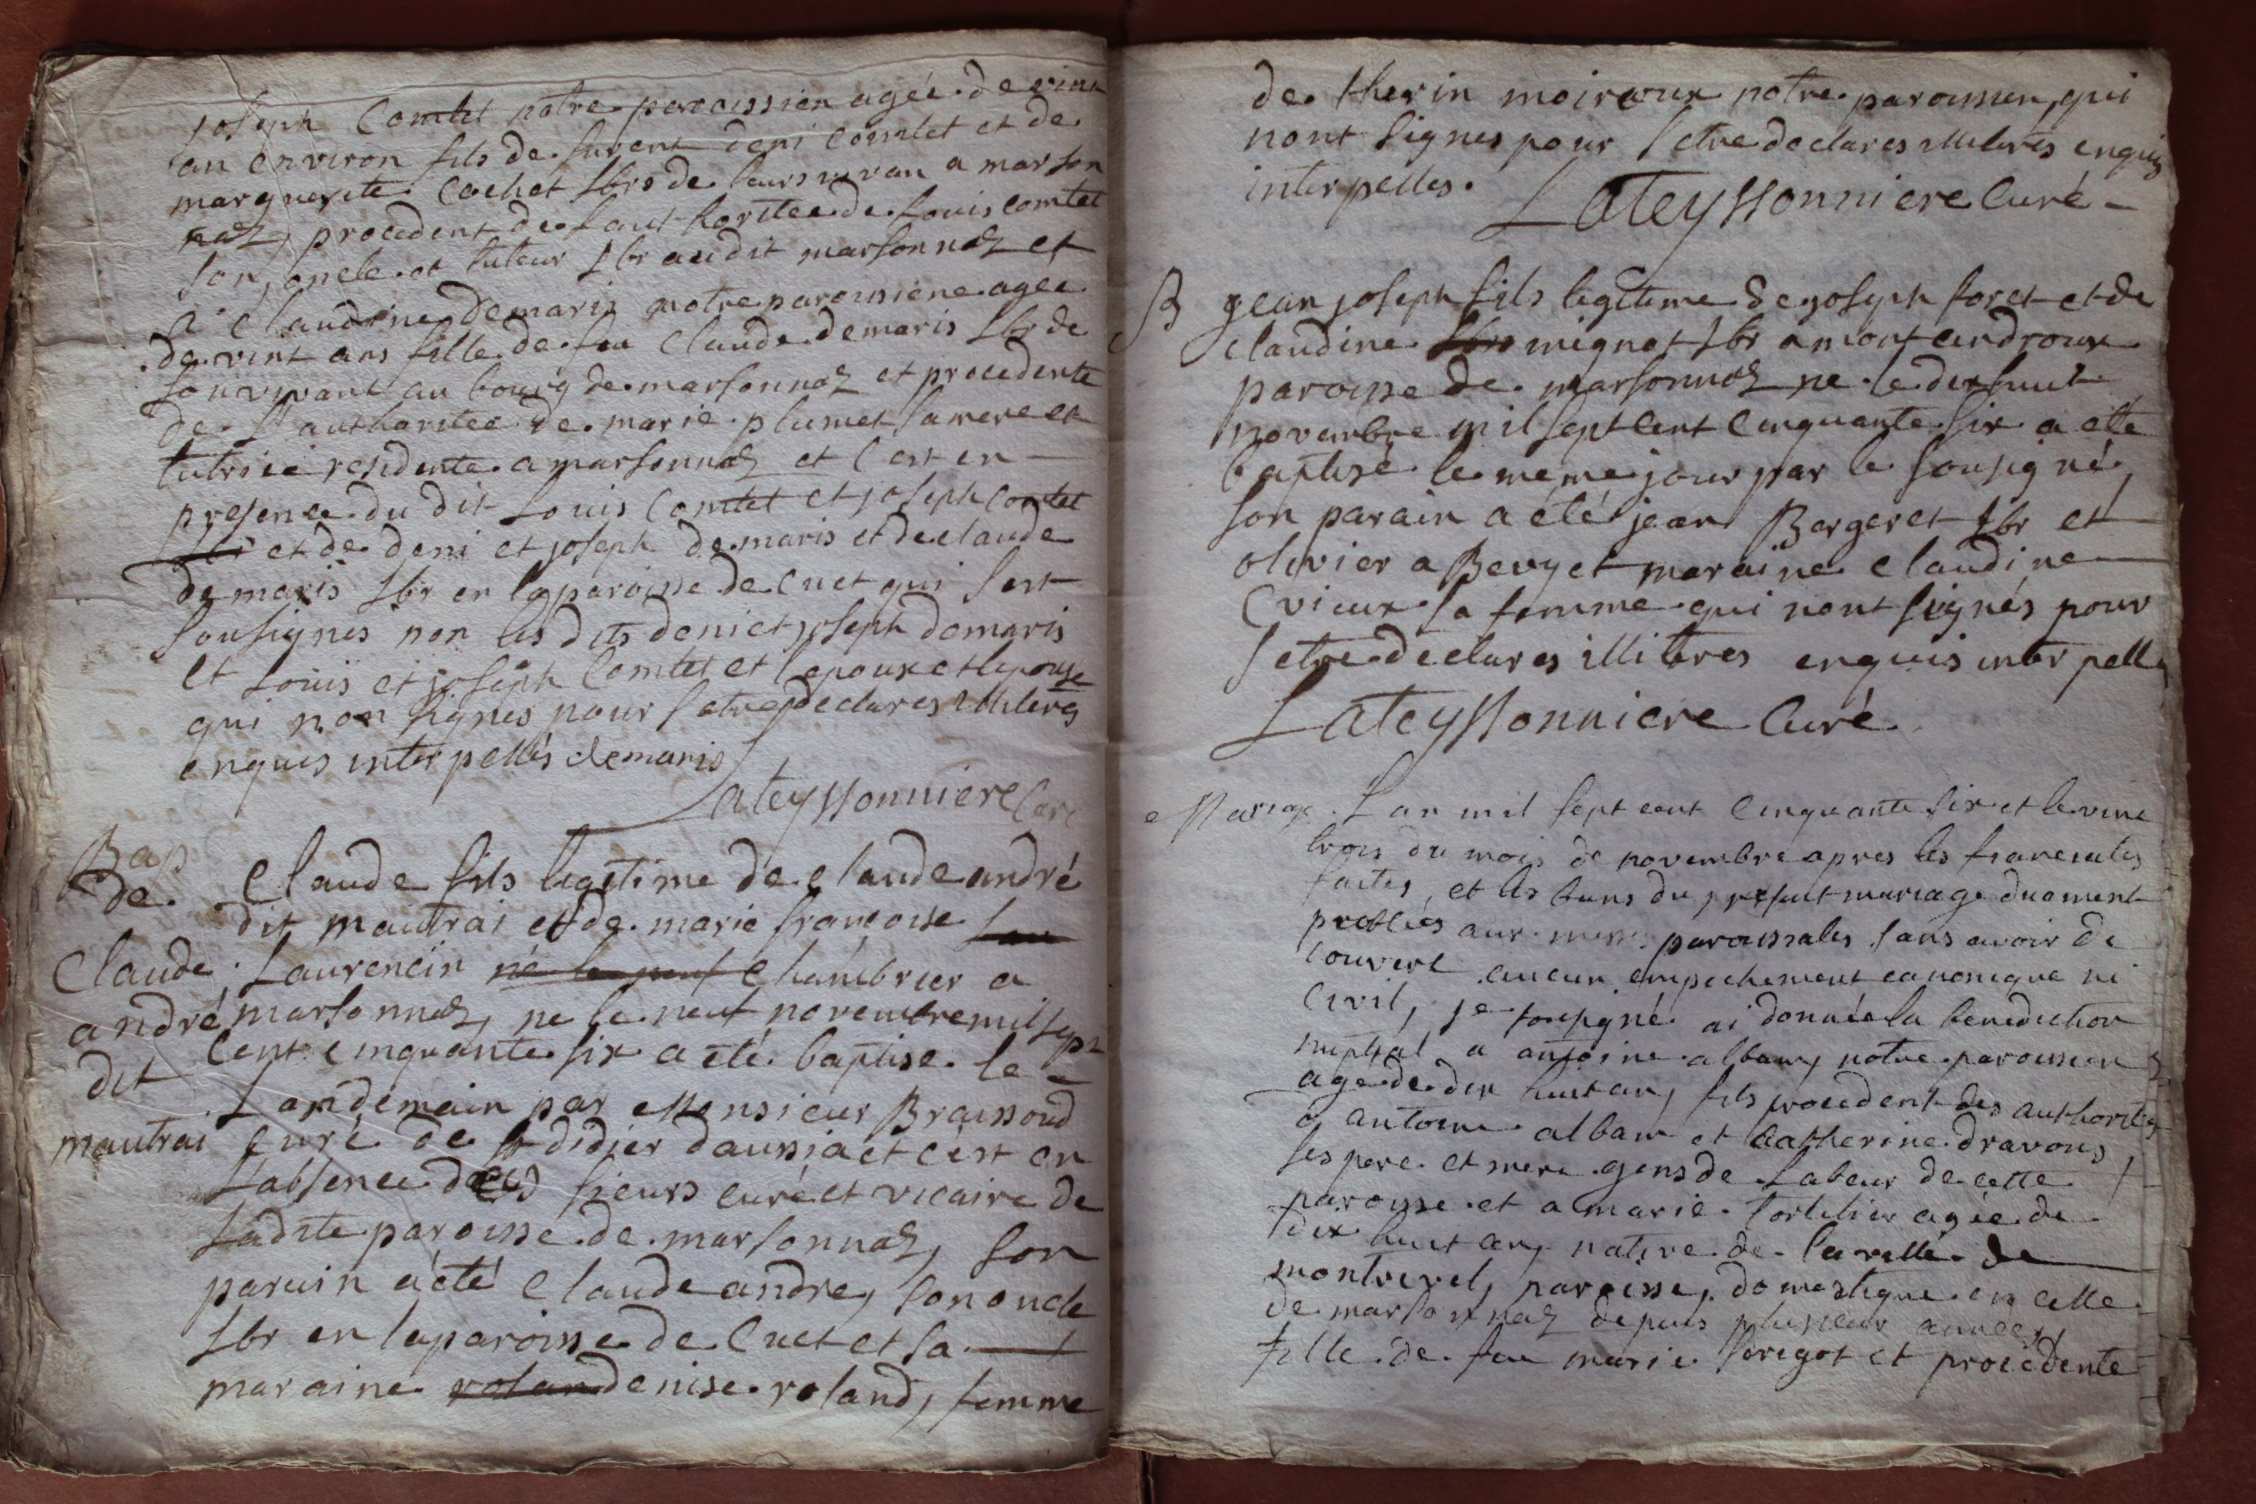 joseph Comtet notre paroissien agée de vint
an environ fils de furent deni comtet et de
marguerite Cochet lbrs de leurs vivan a marson
naz, procedent de lauthoritée de Louis comtet
son oncle et tuteur lbr audit marsonnaz et
a claudine demaris notre paroissiene agée
de vint ans fille de feu Claude demaris lbr de
son vivant au bourg de marsonnaz et procedente
de l'authoritée de marie plumet sa mere et
tutrice residente a marsonnaz et c'est en
presence du dit Louis Comtet et joseph comtet
et de deni et joseph demaris et de claude
demaris lbr en la paroisse de Cuet qui sest
sousignes non les dits deni et joseph demaris
et Louis et joseph Comtet et lepoux et lepouse
qui non signes pour setre declares illiteres
enquis interpellés demaris
Lateyssonniere Curé
Bap
de
Claude
andré
dit
mautrai
Claude fils legitime de claude andré
dit mautrai et de marie francoise
Laurencin né le neuf chambrier a
marsonnaz, ne le neuf novembre mil sept
cent cinquante six a été baptise le
Landemain par Monsieur Braissoud
curé de st didier daussiat et cest en
Labsence des sieurs curé et vicaire de
Ladite paroisse de marsonnaz, son
parain a été Claude andre, son oncle
lbr en la paroisse de Cuet et sa
maraine rolan denise roland, femme
de therin moiroux notre paroissien, qui
nont signes pour setre declares illiteres enquis
interpelles.
Lateyssonniere Curé
B
jean joseph fils legitime de joseph foret et de
claudine mignot lbr a montcindroux
paroisse de marsonnaz ne le dix huit
novembre mil sept cent cinquante six a ete
baptisé le meme jour par le sousigné,
son parain a été jean Bergeret lbr et
olivier a Bevy et maraine claudine
Cvieux sa femme qui nont signés pour
setre declares illiteres enquis interpelles
Lateyssonniere Curé
Mariage. Lan mil sept cent cinquante six et le vint
trois du mois de novembre apres les fiancailles
faites, et les bans du present mariage duement
publiés aux messes paroissiales sans avoir de
couvert aucun empechement canonique ni
civil, je sousigné ai donnée la benediction
nuptial a antoine alban, notre paroissien
age de dix huit an, fils procedent des authorites
d antoine alban et Catherine dravons,
ses pere et mere gens de Labeur de cette
paroisse et a marie tortelier agée de
dix huit an, native de la ville de
montrevel, paroisse, domestique en celle
de marsonnaz depuis plusieur années,
fille de feu marie sorigot et procedente